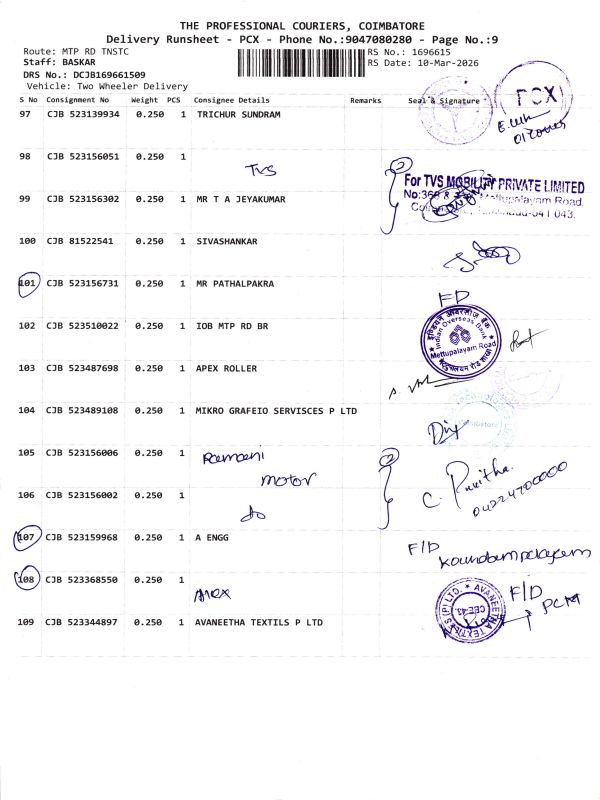 THE PROFESSIONAL COURIERS, COIMBATORE
Delivery Runsheet - PCX - Phone No.:9047080280 - Page No.:9
Route: MTP RD TNSTC RS No.: 1696615
Staff: BASKAR RS Date: 10-Mar-2026
DRS No.: DCJB169661509
Vehicle: Two Wheeler Delivery
S No Consignment No Weight PCS Consignee Details Remarks Seal & Signature
97 CJB 523139934 0.250 1 TRICHUR SUNDRAM
PCX
98 CJB 523156051 0.250 1
TVS
For TVS MOBILITY PRIVATE LIMITED
99 CJB 523156302 0.250 1 MR T A JEYAKUMAR
Mettupalayam Road,
641 043.
100 CJB 81522541 0.250 1 SIVASHANKAR
101 CJB 523156731 0.250 1 MR PATHALPAKRA
FD
102 CJB 523510022 0.250 1 IOB MTP RD BR
Indian Overseas Bank
Mettupalayam Road
103 CJB 523487698 0.250 1 APEX ROLLER
104 CJB 523489108 0.250 1 MIKRO GRAFEIO SERVISCES P LTD
105 CJB 523156006 0.250 1 Ramani
motor
C. Pavitha.
04224700000
106 CJB 523156002 0.250 1
do
107 CJB 523159968 0.250 1 A ENGG
F/D
108 CJB 523368550 0.250 1
F/D
109 CJB 523344897 0.250 1 AVANEETHA TEXTILS P LTD
AVANEETHA TEXTILES (P) LTD.
CBE-43